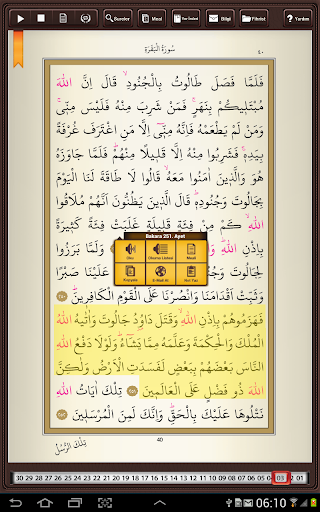 Sureler
Meal
Bilgi
Fihrist
Yardım
سُورَةُ الْبَقَرَةِ
٤٠
فَلَمَّا فَصَلَ طَالُوتُ بِالْجُنُودِ قَالَ اِنَّ اللّٰهَ
مُبْتَلِيكُمْ بِنَهَرٍۚ فَمَنْ شَرِبَ مِنْهُ فَلَيْسَ مِنّ۪يۚ
وَمَنْ لَمْ يَطْعَمْهُ فَاِنَّهُ مِنّ۪ٓي اِلَّا مَنِ اغْتَرَفَ غُرْفَةً
بِيَدِه۪ۚ فَشَرِبُوا مِنْهُ اِلَّا قَل۪يلًا مِنْهُمْۜ فَلَمَّا جَاوَزَهُ
هُوَ وَالَّذ۪ينَ اٰمَنُوا مَعَهُ قَالُوا لَا طَاقَةَ لَنَا الْيَوْمَ
بِجَالُوتَ وَجُنُودِه۪ۜ قَالَ الَّذ۪ينَ يَظُنُّونَ اَنَّهُمْ مُلَاقُوا
اللّٰهِۙ كَمْ مِنْ فِئَةٍ قَل۪يلَةٍ غَلَبَتْ فِئَةً كَث۪يرَةً
بِاِذْنِ اللّٰهِۜ وَلَمَّا بَرَزُوا
Bakara 251. Ayet
Oku
Okuma Listesi
Meali
Kopyala
E-Mail At
Not Yaz
عَلَيْنَا صَبْرًا
وَثَبِّتْ اَقْدَامَنَا وَانْصُرْنَا عَلَى الْقَوْمِ الْكَافِر۪ينَۜ ﴿٢٥٠﴾
فَهَزَمُوهُمْ بِاِذْنِ اللّٰهِ وَقَتَلَ دَاوُ۫دُ جَالُوتَ وَاٰتٰيهُ اللّٰهُ
الْمُلْكَ وَالْحِكْمَةَ وَعَلَّمَهُ مِمَّا يَشَٓاءُۜ وَلَوْلَا دَفْعُ اللّٰهِ
النَّاسَ بَعْضَهُمْ بِبَعْضٍ لَفَسَدَتِ الْاَرْضُ وَلٰكِنَّ
اللّٰهَ ذُو فَضْلٍ عَلَى الْعَالَم۪ينَ ﴿٢٥١﴾ تِلْكَ اٰيَاتُ اللّٰهِ
نَتْلُوهَا عَلَيْكَ بِالْحَقِّۜ وَاِنَّكَ لَمِنَ الْمُرْسَل۪ينَ ﴿٢٥٢﴾
تِلْكَ الرُّسُلُ
40
30 29 28 27 26 25 24 23 22 21 20 19 18 17 16 15 14 13 12 11 10 09 08 07 06 05 04 03 02 01
06:10